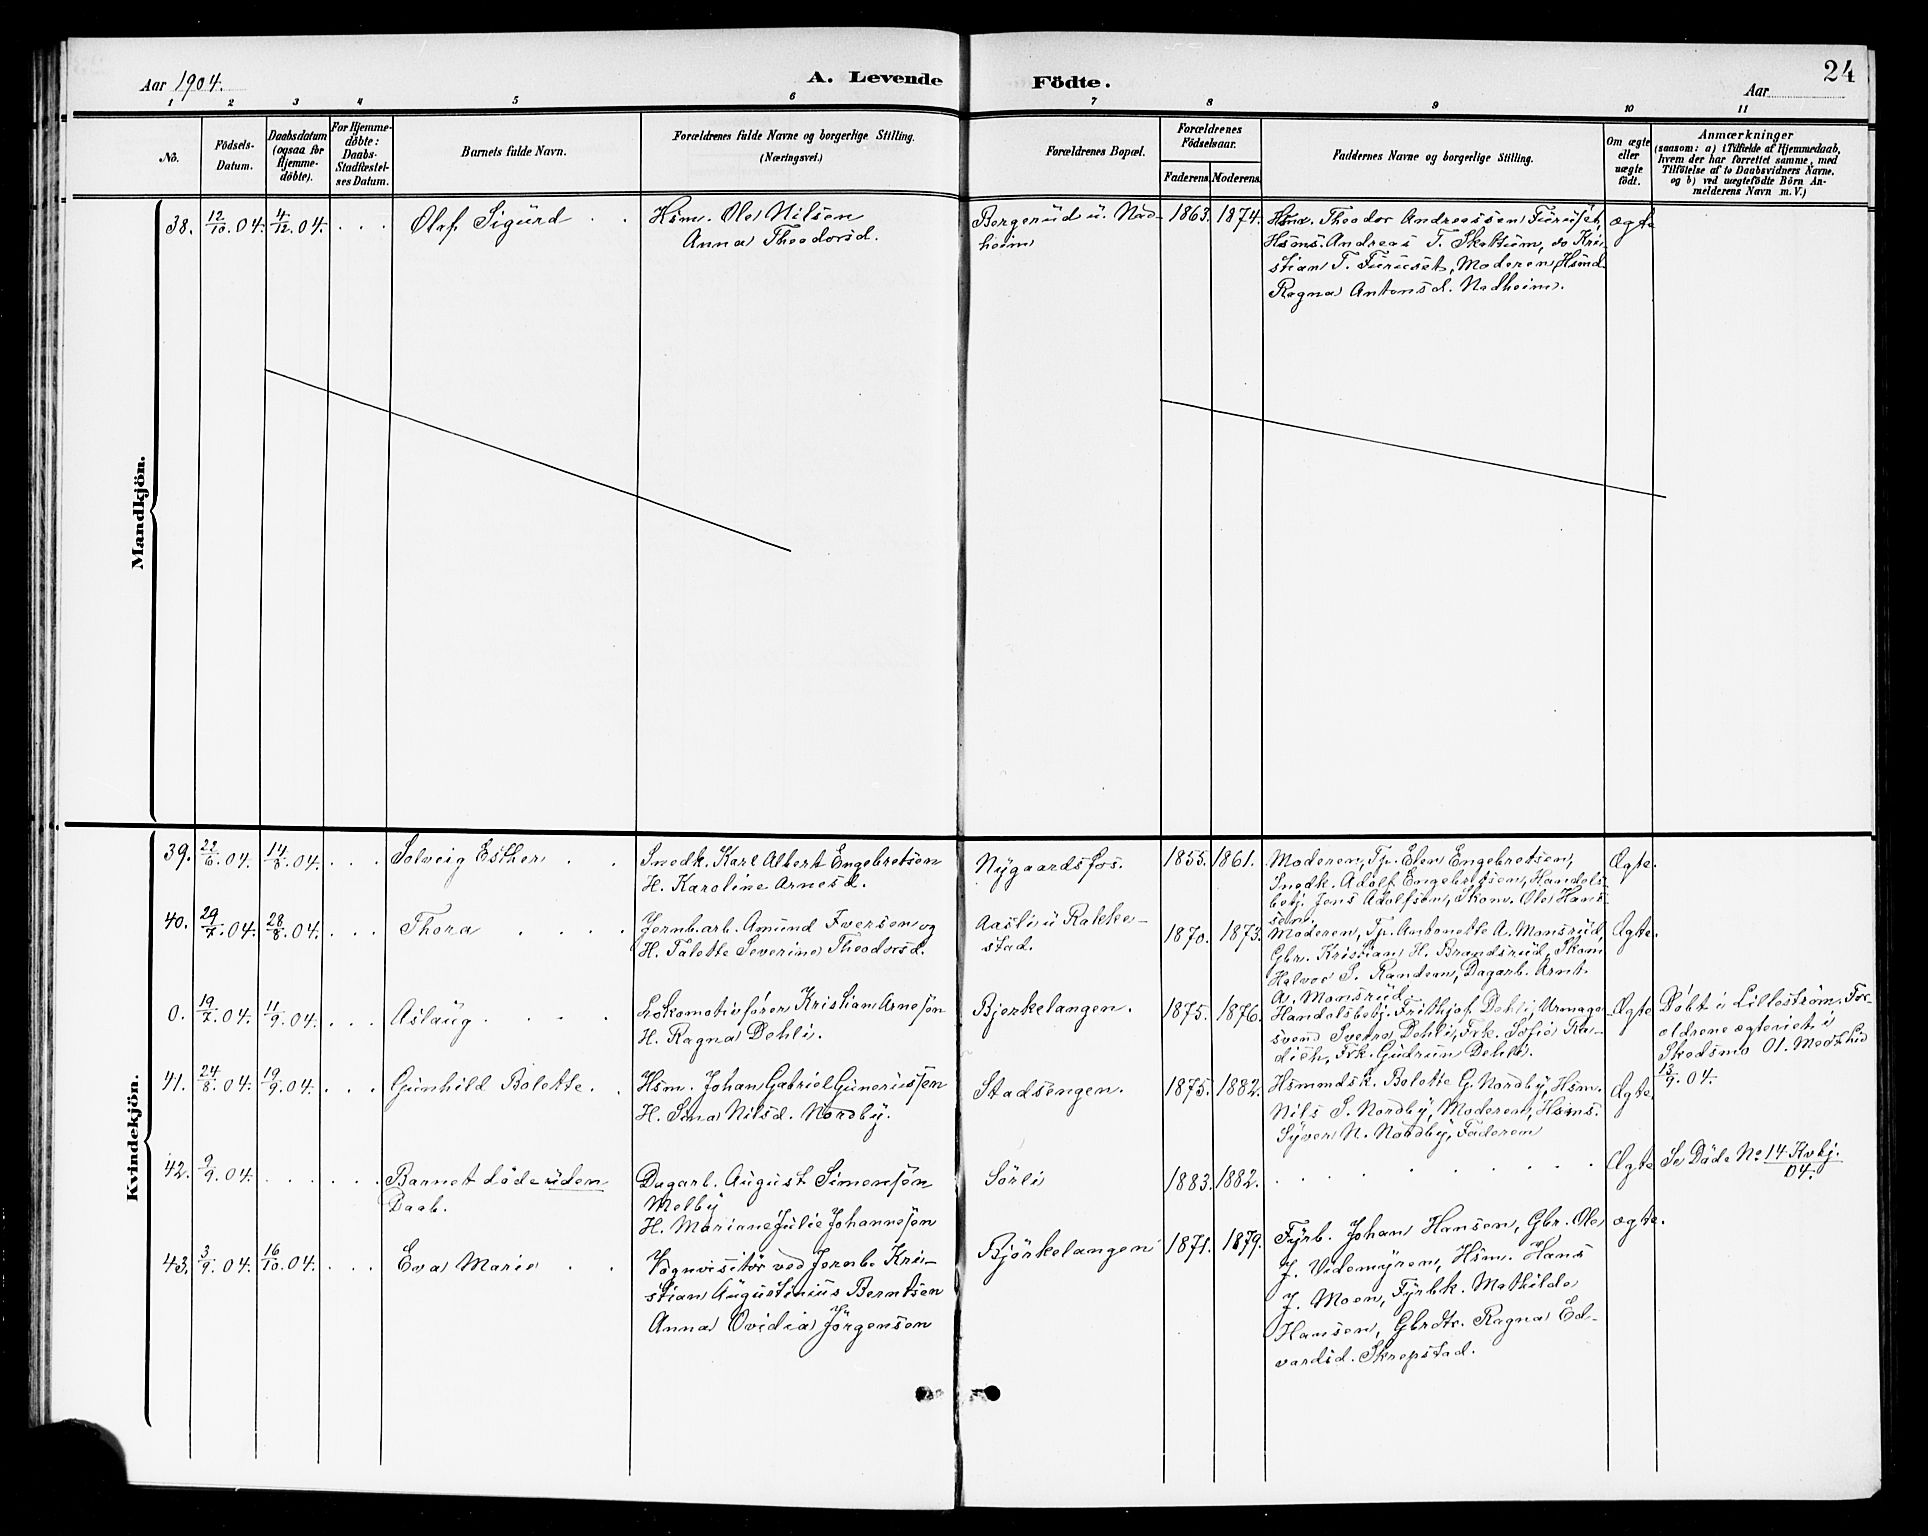 24
Aar 1904.
A. Levende
Födte.
Aar
1 2 3 4 5 6 7 8 9 10 11
No.
Födsels-
Datum.
Daabsdatum
(ogsaa for
Hjemme-
döbte).
For Hjemme-
döbte:
Daabs-
Stadfæstel-
ses Datum.
Barnets fulde Navn.
Forældrenes fulde Navne og borgerlige Stilling.
(Næringsvei.)
Forældrenes Bopæl.
Forældrenes
Födselsaar.
Faderens.
Moderens.
Faddernes Navne og borgerlige Stilling.
Om ægte
eller
uægte
födt.
Anmærkninger
(saasom: a) i Tilfælde af Hjemmedaab,
hvem der har forrettet samme, med
Tilföielse af to Daabsvidners Navne.
og b) ved uægtefödte Börn An-
melderens Navn m. V.)
Mandkjön.
38. 12/10.04. 4/12.04. . . . Olaf Sigurd . .
Hsm. Ole Nilsen
Anna Theodorsd.
Bergerud u. Nad-
heim
1863. 1874.
Hsm. Theodor Andreassen Furuset,
Hsms. Andreas T. Skattum, do Kri-
stian T. Furuset, Moderen, Hsmd.
Ragna Antonsd. Nadheim.
ægte
Kvindekjön.
39. 22/6.04. 14/8.04. . . . Solveig Esther . .
Snedk. Karl Albert Engebretsen
H. Karoline Arnesd.
Nygaardsfos.
1855. 1861.
Moderen, Tp. Elen Engebretsen,
Snedk. Adolf Engebretsen, Handels-
betj. Jens Adolfsen, Skom. Ole Hans-
sen.
Ægte.
40. 29/7.04. 28/8.04. . . . Thora . . . .
Jernb.arb. Amund Iversen og
H. Talette Severine Theodorsd.
Aasli u Rakke-
stad.
1870. 1873.
Moderen, Tp. Antonette A. Mansrud,
Gbr. Kristian H. Brandsrud, Skom
Halvor S. Randem, Dagarb. Arnt.
A. Mansrud
Ægte.
0. 19/7.04. 11/9.04. . . . Aslaug . . . .
Lokomotivfører Kristian Arnesen
H. Ragna Dehli.
Bjerkelangen.
1875. 1876.
Handelsbetj. Frithjof Dehli, Urmager-
svend Sverre Dehli, Frk. Sofie Ra-
dich, Frk. Gudrun Dehli.
Ægte
Døbt i Lillestrøm. For-
ældrene ægteviet i
Skedsmo 01. Medd.
13/9.04.
41. 24/8.04. 19/9.04. . . . Gunhild Bolette. .
Hsm. Johan Gabriel Guneriussen
H. Sina Nilsd. Nordby.
Stadsengen.
1875. 1882.
Hsmmdsk. Bolette G. Nordby, Hsm.
Nils S. Nordby, Moderen, Hsms.
Syver N. Nordby, Faderen
Ægte
42. 9/9.04. . . . . . . Barnet döde uden
Daab.
Dagarb. August Simensen
Melby
H. Mariane Julie Johannesen
Sörli
1883. 1882.
Ægte
Se Døde No 14 Kvkj.
04.
43. 3/9.04. 16/10.04. . . . Eva Marie . .
Vognvisitør ved Jernb. Kri-
stian Augustinius Berntsen
Anna Ovidia Jörgensen
Bjørkelangen
1871. 1879.
Fyrb. Johan Hansen, Gbr. Ole
J. Videmyren, Hsm. Hans
J. Moen, Fyrbk. Mathilde
Hansen, Gbrdtr. Ragna Ed-
vardsd. Skrepstad.
ægte.